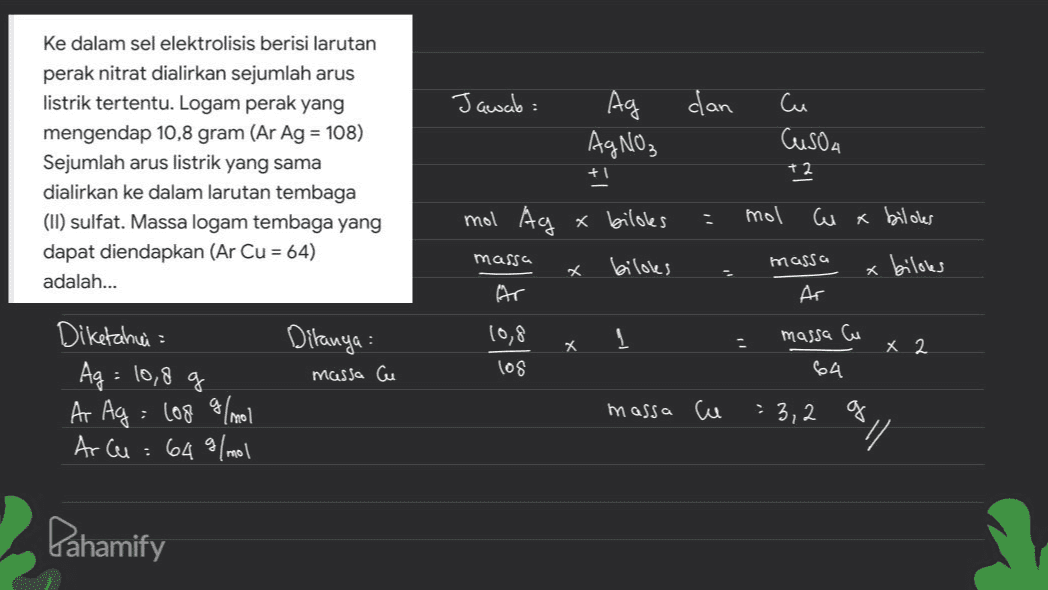 Ke dalam sel elektrolisis berisi larutan
perak nitrat dialirkan sejumlah arus
listrik tertentu. Logam perak yang
mengendap 10,8 gram (Ar Ag = 108)
Sejumlah arus listrik yang sama
dialirkan ke dalam larutan tembaga
(II) sulfat. Massa logam tembaga yang
dapat diendapkan (Ar Cu = 64)
adalah...
Diketahui :
Ag = 10,8 g
Ar Ag = 108 g/mol
Ar Cu = 64 g/mol
Ditanya :
massa Cu
Jawab : Ag dan Cu
AgNO3 CuSO4
+1 +2
mol Ag x biloks = mol Cu x biloks
massa/Ar x biloks = massa/Ar x biloks
10,8/108 x 1 = massa Cu/64 x 2
massa Cu = 3,2 g //
Pahamify